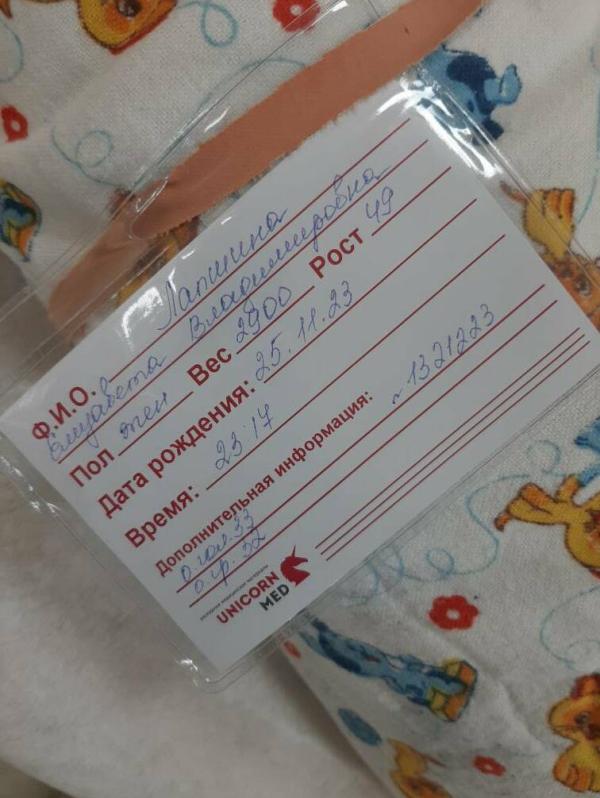 Лапшина
Ф.И.О. Елизавета Владимировна
Пол жен Вес 2900 Рост 49
Дата рождения: 25.11.23
Время: 23 17
Дополнительная информация: ~ 1321223
о.гол. 33
о.гр. 32
UNICORN
MED